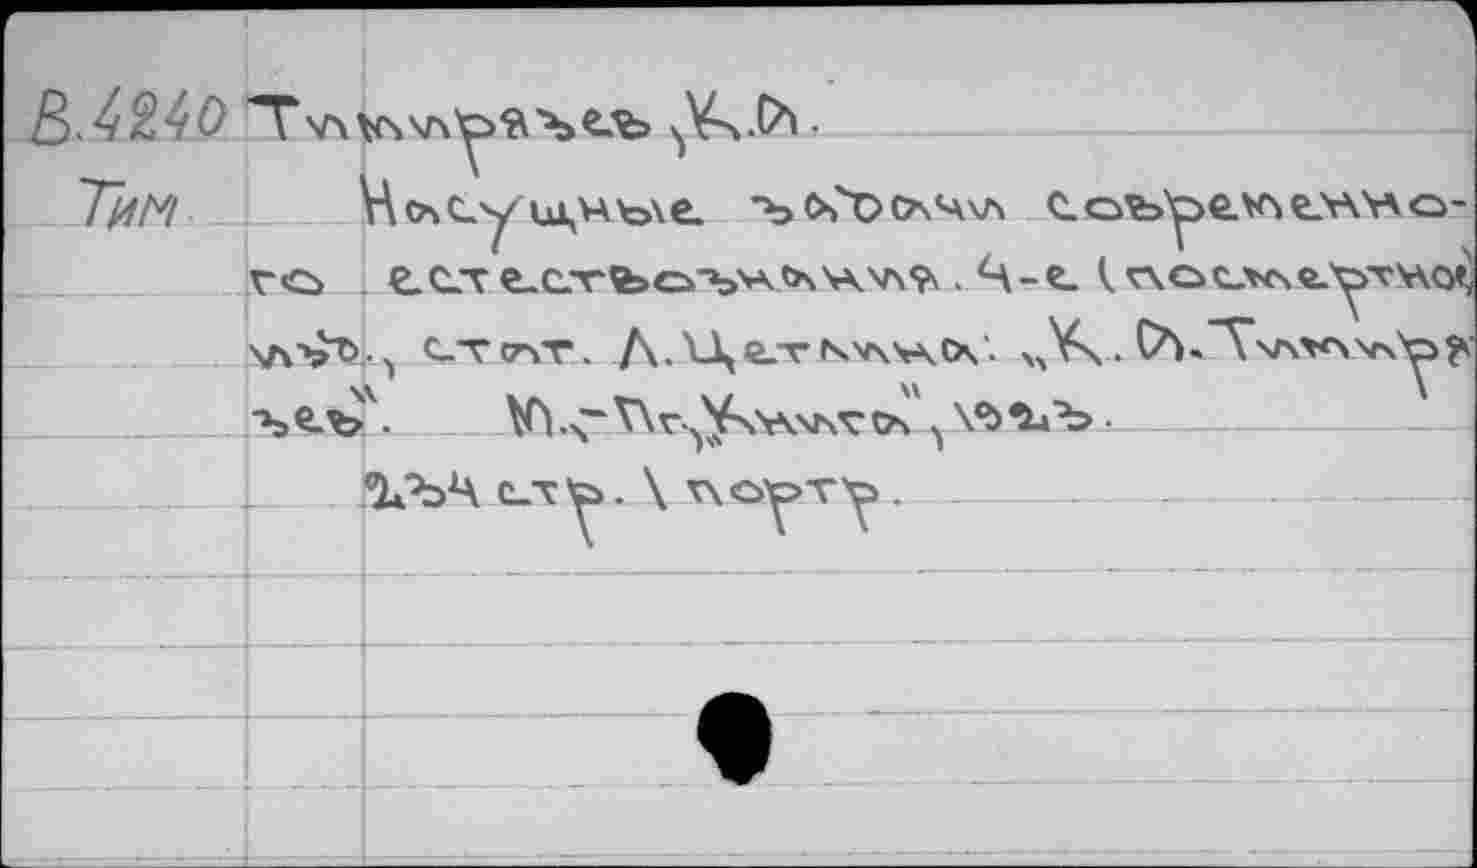 В.4240 Тимирязев, К.А.
Тим Насущные задачи современно-
го естествознания. Ч-е (посмертное)
изд., стат. Л. Цетлина: „К. А. Тимиря-
зев". М.,-Пг., „Книга", 1923.
234 стр. 1 портр.